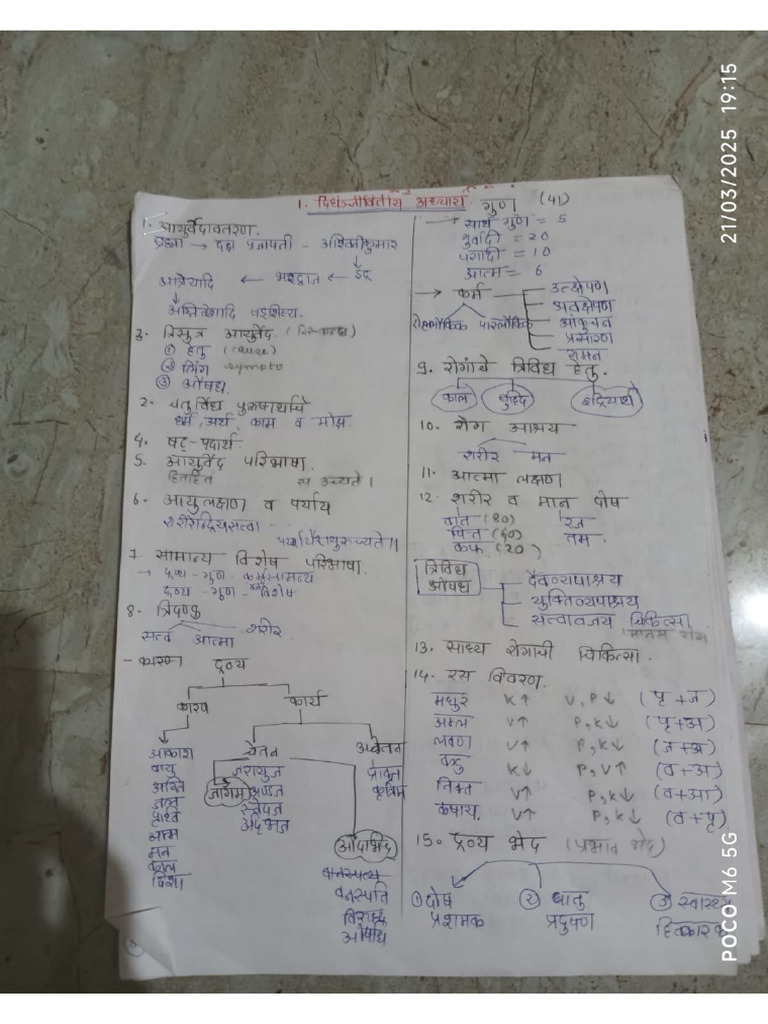 1. दिर्घंजीवितीय अध्याय
1. आयुर्वेदावतरण.
ब्रह्मा → दक्ष प्रजापती - अश्विनीकुमार
आत्रेयादि ← भरद्वाज ← इंद्र
अग्निवेशादि षड्शिष्य.
3. त्रिसुत्र आयुर्वेद.
① हेतु (cause)
② लिंग
③ औषध
2. चतुर्विध पुरुषार्थाचे
धर्म, अर्थ, काम व मोक्ष.
4. षट्-पदार्थ.
5. आयुर्वेद परिभाषा.
हिताहितं उच्यते।
6. आयुलक्षण व पर्याय
शरीरेन्द्रियसत्वा.
पर्यायैरायुरुच्यते॥
7. सामान्य विशेष परिभाषा.
→ द्रव्य - गुण - कर्मसामान्य
द्रव्य - गुण - कर्म विशेष
8. त्रिदण्ड
सत्व आत्मा शरीर.
- कारण द्रव्य
कारण कार्य
आकाश
वायु
अग्नि
जल
पृथ्वि
आत्म
मन
काल
दिशा
चेतन
जांगम
जरायुज
अण्डज
स्वेदज
उद्भिज
अचेतन
प्राकृत
कृत्रिम
औदभिद
वानस्पत्य
वनस्पति
विरुध
औषधि
गुण (41)
→ सार्थ गुण = 5
गुर्वादी = 20
परादी = 10
आत्म = 6
→ कर्म
पारलौकिक
उत्क्षेपण
अवक्षेपण
आकुंचन
प्रसारण
गमन
9. रोगांचे त्रिविध हेतु.
काल बुद्धि इंद्रियार्थ
10. रोग आश्रय
शरीर मन
11. आत्मा लक्षण
12. शरीर व मान दोष
वात (80) रज
पित्त (40) तम
कफ (20)
त्रिविध औषध
दैवव्यपाश्रय
युक्तिव्यपाश्रय
सत्वावजय चिकित्सा
मानस रोग
13. साध्य रोगाची चिकित्सा.
14. रस विवरण.
मधुर K↑ V, P↓ (पृ+ज)
अम्ल V↑ P, K↓ (पृ+अ)
लवण V↑ P, K↓ (ज+अ)
कटु K↓ P, V↑ (व+अ)
तिक्त V↑ P, K↓ (व+आ)
कषाय. V↑ P, K↓ (व+पृ)
15. द्रव्य भेद (प्रभाव भेद)
① दोष प्रशमक
② धातु प्रदुषण
③ स्वास्थ्य हितकारक
21/03/2025 19:15
POCO M6 5G